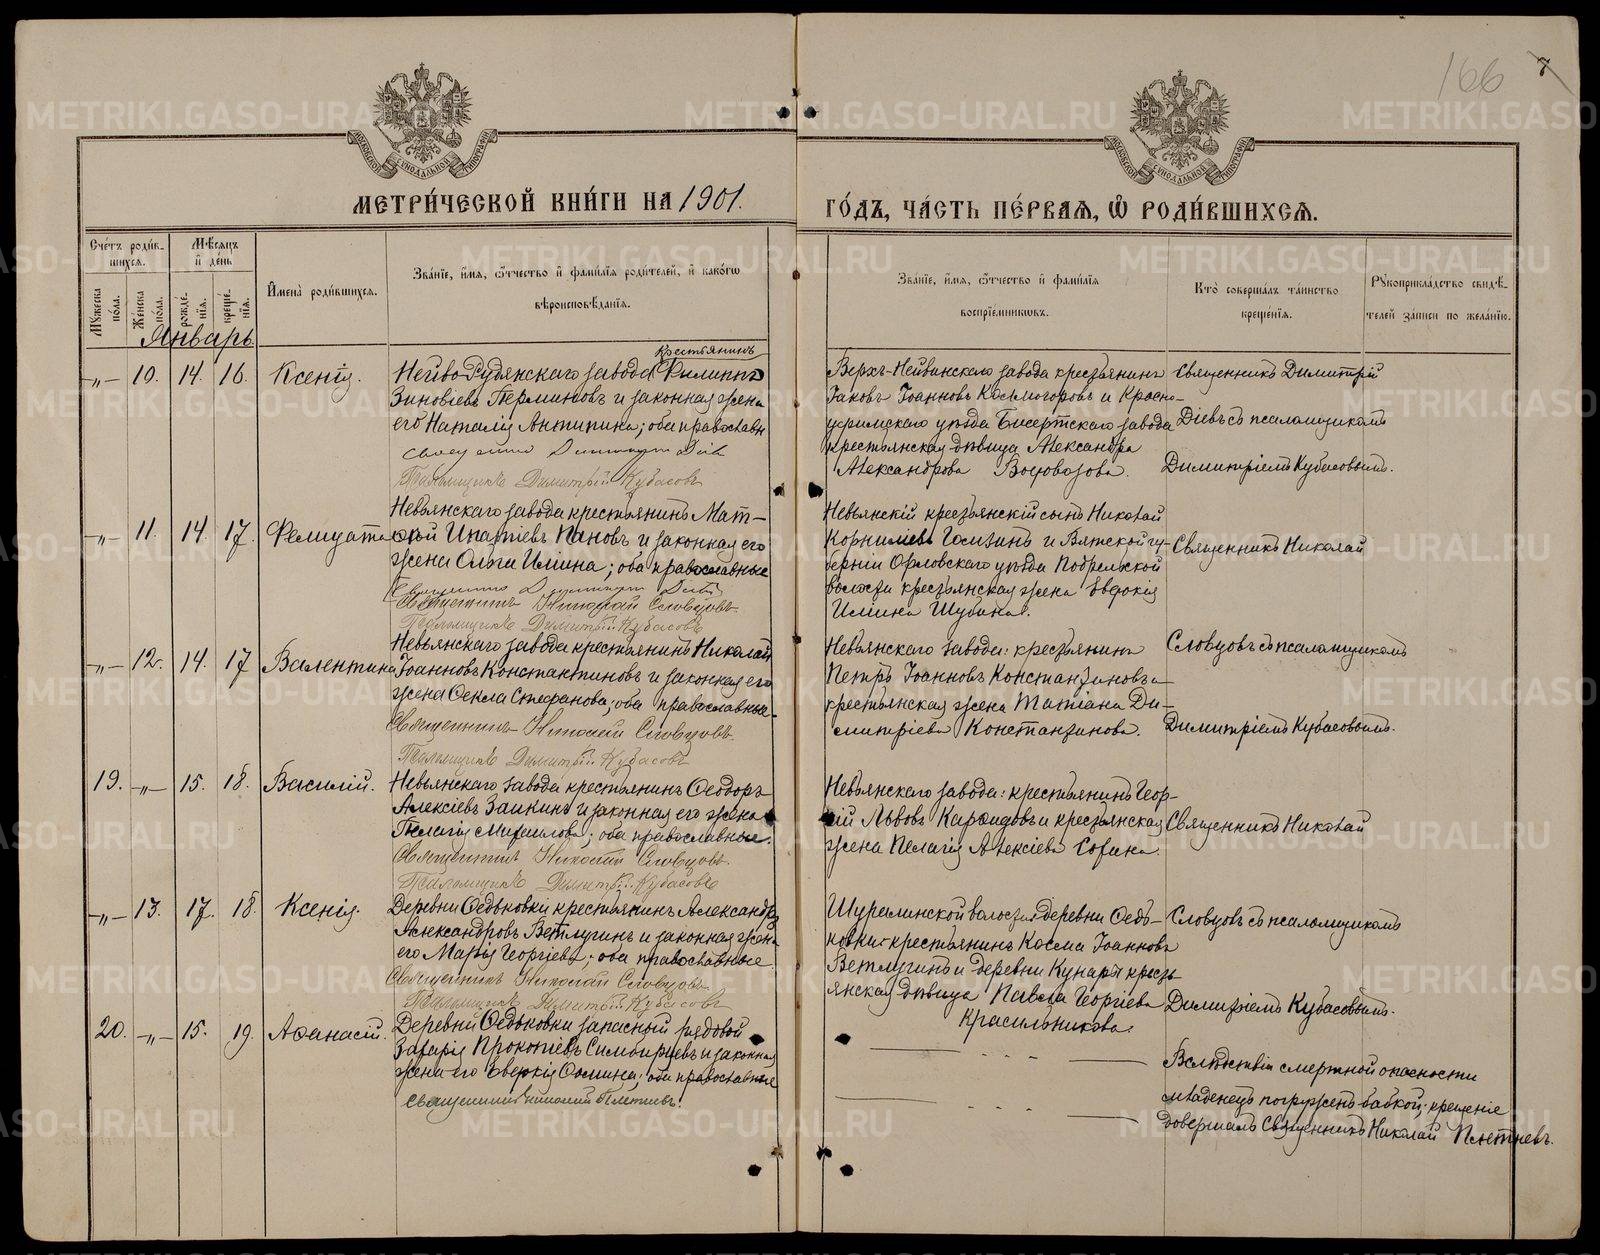 166 7
МОСКОВСКОЙ СУНОДАЛЬНОЙ ТИПОГРАФІИ
МОСКОВСКОЙ СУНОДАЛЬНОЙ ТИПОГРАФІИ
МЕТРИ́ЧЕСКОЙ КНИ́ГИ НА 1901.
ГО́ДЪ, ЧА́СТЬ ПЕ́РВАѦ, Ѡ҆ РОДИ́ВШИХСѦ.
Сче́тъ роди́в-
шихсѧ.
Мѣ́сѧцъ
и҆ де́нь
И҆мена̀ роди́вшихсѧ.
Зва́нїе, и҆́мѧ, ѻ҆́тчество и҆ фами́лїѧ роди́телей, и҆ како́гѡ
вѣроисповѣ́данїѧ.
Мꙋ́жеска
по́ла.
Же́нска
по́ла.
рожде́-
нїѧ.
креще́-
нїѧ.
Зва́нїе, и҆́мѧ, ѻ҆́тчество и҆ фами́лїѧ
воспрїе́мникѡвъ.
Кто̀ соверша́лъ та́инство
креще́нїѧ.
Рꙋкоприкла́дство свидѣ́-
телей за́писи по жела́нїю.
Январь
-„- 10. 14. 16. Ксенія.
крестьянинъ
Нейво Рудянскаго завода Филиппъ
Зиновіевъ Перминовъ и законная жена
его Наталія Антипина; оба православн
Псаломщикъ Димитрій Кубасовъ
Верхъ-Нейвинскаго завода крестьянинъ
Іаковъ Іоанновъ Косьмогоровъ и Красно-
уфимскаго уѣзда Бисертскаго завода
крестьянская дѣвица Александра
Александрова
Священникъ Димитрій
Діевъ съ псаломщикомъ
Димитріемъ Кубасовымъ.
-„- 11. 14. 17. Фелицата
Невьянскаго завода крестьянинъ Мат-
ѳей Ипатіевъ Пановъ и законная его
жена Ольга Иліина; оба православные
Священникъ Николай Словцовъ
Псаломщикъ Димитрій Кубасовъ
Невьянскій крестьянскій сынъ Николай
Корниліевъ и Вятской гу-
берніи Орловскаго уѣзда
волости крестьянская жена Евдокія
Иліина Шубина.
Священникъ Николай
-„- 12. 14. 17 Валентина
Невьянскаго завода крестьянинъ Николай
Іоанновъ Константиновъ и законная его
жена Ѳекла Стефанова; оба православные.
Священникъ Николай Словцовъ.
Псаломщикъ Димитрій Кубасовъ
Невьянскаго завода: крестьянинъ
Петръ Іоанновъ Константиновъ и
крестьянская жена Татіана Ди-
митріева Константинова.
Словцовъ съ псаломщикомъ
Димитріемъ Кубасовымъ.
19. -„- 15. 18. Василій.
Невьянскаго завода крестьянинъ Ѳеодоръ
Алексіевъ Заикинъ и законная его жена
Пелагія Михаилова; оба православные.
Священникъ Николай Словцовъ
Псаломщикъ Димитрій Кубасовъ
Невьянскаго завода: крестьянинъ Геор-
гій Львовъ и крестьянская
жена Пелагія Алексіева
Священникъ Николай
-„- 13. 17. 18. Ксенія.
Деревни Ѳедьковки крестьянинъ Александръ
Александровъ Ветлугинъ и законная жена
его Марія Георгіева; оба православные
Священникъ Николай Словцовъ
Псаломщикъ Димитрій Кубасовъ
Шуралинской волости деревни Ѳедь-
ковки крестьянинъ Косма Іоанновъ
Ветлугинъ и деревни Кунары кресть-
янская дѣвица Павла Георгіева
Красильникова.
Словцовъ съ псаломщикомъ
Димитріемъ Кубасовымъ.
20. -„- 15. 19. Аѳанасій.
Деревни Ѳедьковки запасный рядовой
Захарія Прокопіевъ и законная
жена его Евдокія Ѳомина; оба православные
Священникъ Николай Плетневъ.
Вслѣдствіи смертной опасности
младенецъ погруженъ бабкой; крещеніе
довершалъ Священникъ Николай Плетневъ.